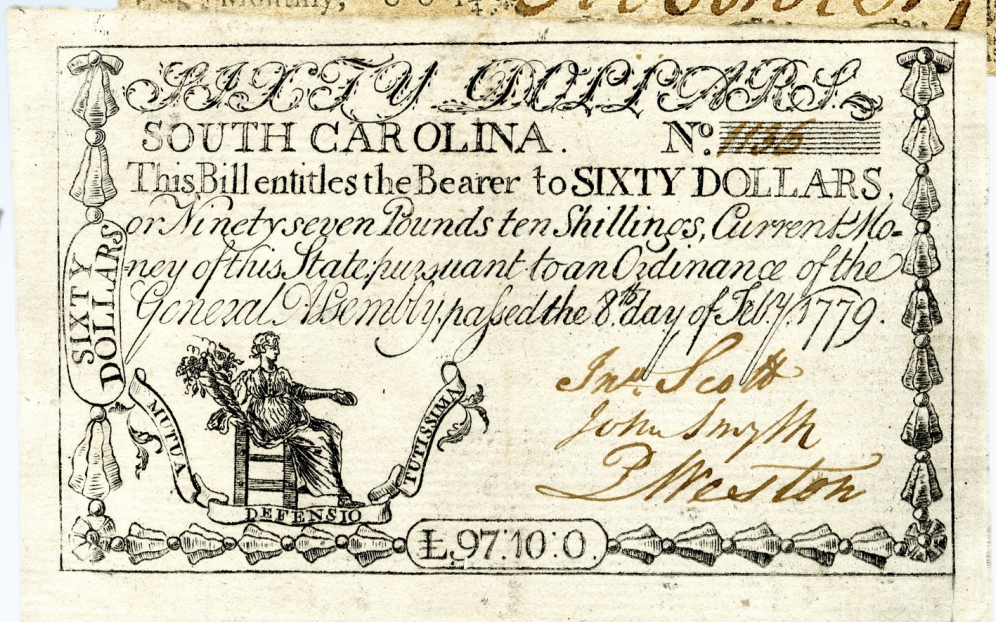 SIXTY DOLLARS.
SOUTH CAROLINA. No. 1136
This Bill entitles the Bearer to SIXTY DOLLARS,
or Ninety seven Pounds ten Shillings, Current Mo-
ney of this State; pursuant to an Ordinance of the
General Assembly, passed the 8th. day of Feb.y. 1779.
SIXTY
DOLLARS
Jno. Scott
John Smyth
P Weston
MUTUA
DEFENSIO
TUTISSIMA
£.97:10:0.